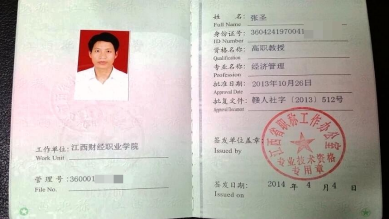 工作单位: 江西财经职业学院
Work Unit
管理号: 360001
File No.
姓名: 张圣
Full Name
身份证号: 3604241970041
ID Number
资格名称: 高职教授
Qualification
专业名称: 经济管理
Profession
批准日期: 2013年10月26日
Approval Date
批复文号: 赣人社字〔2013〕512号
Approval Document
签发单位盖章:
Issued by
江西省职称工作办公室
专业技术资格
专用章
签发日期: 2014年4月4日
Issued on